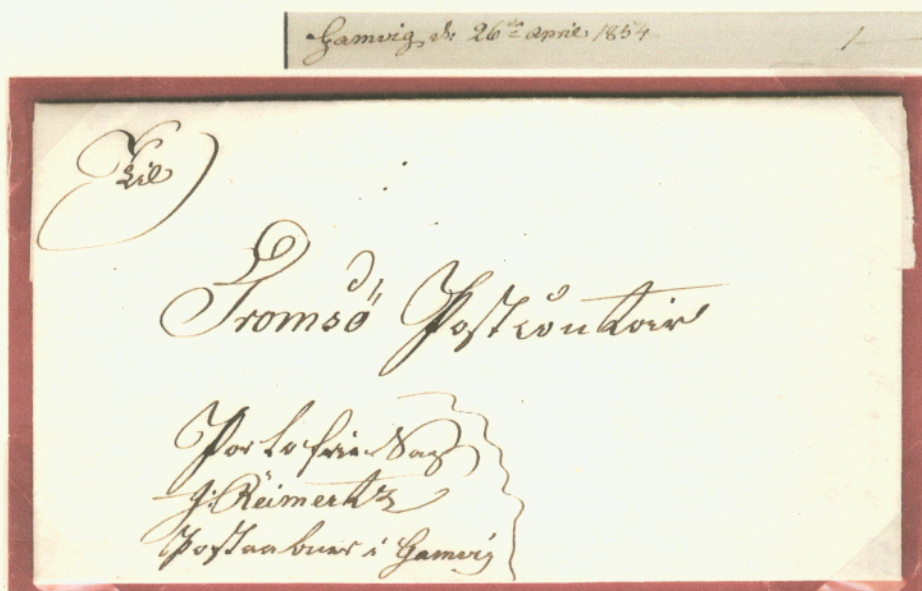 Gamvig d: 26de April 1854
1
Til
Tromsö Postcontoir
Portofrie Sag
J: Reimertz
Postaabner i Gamvig